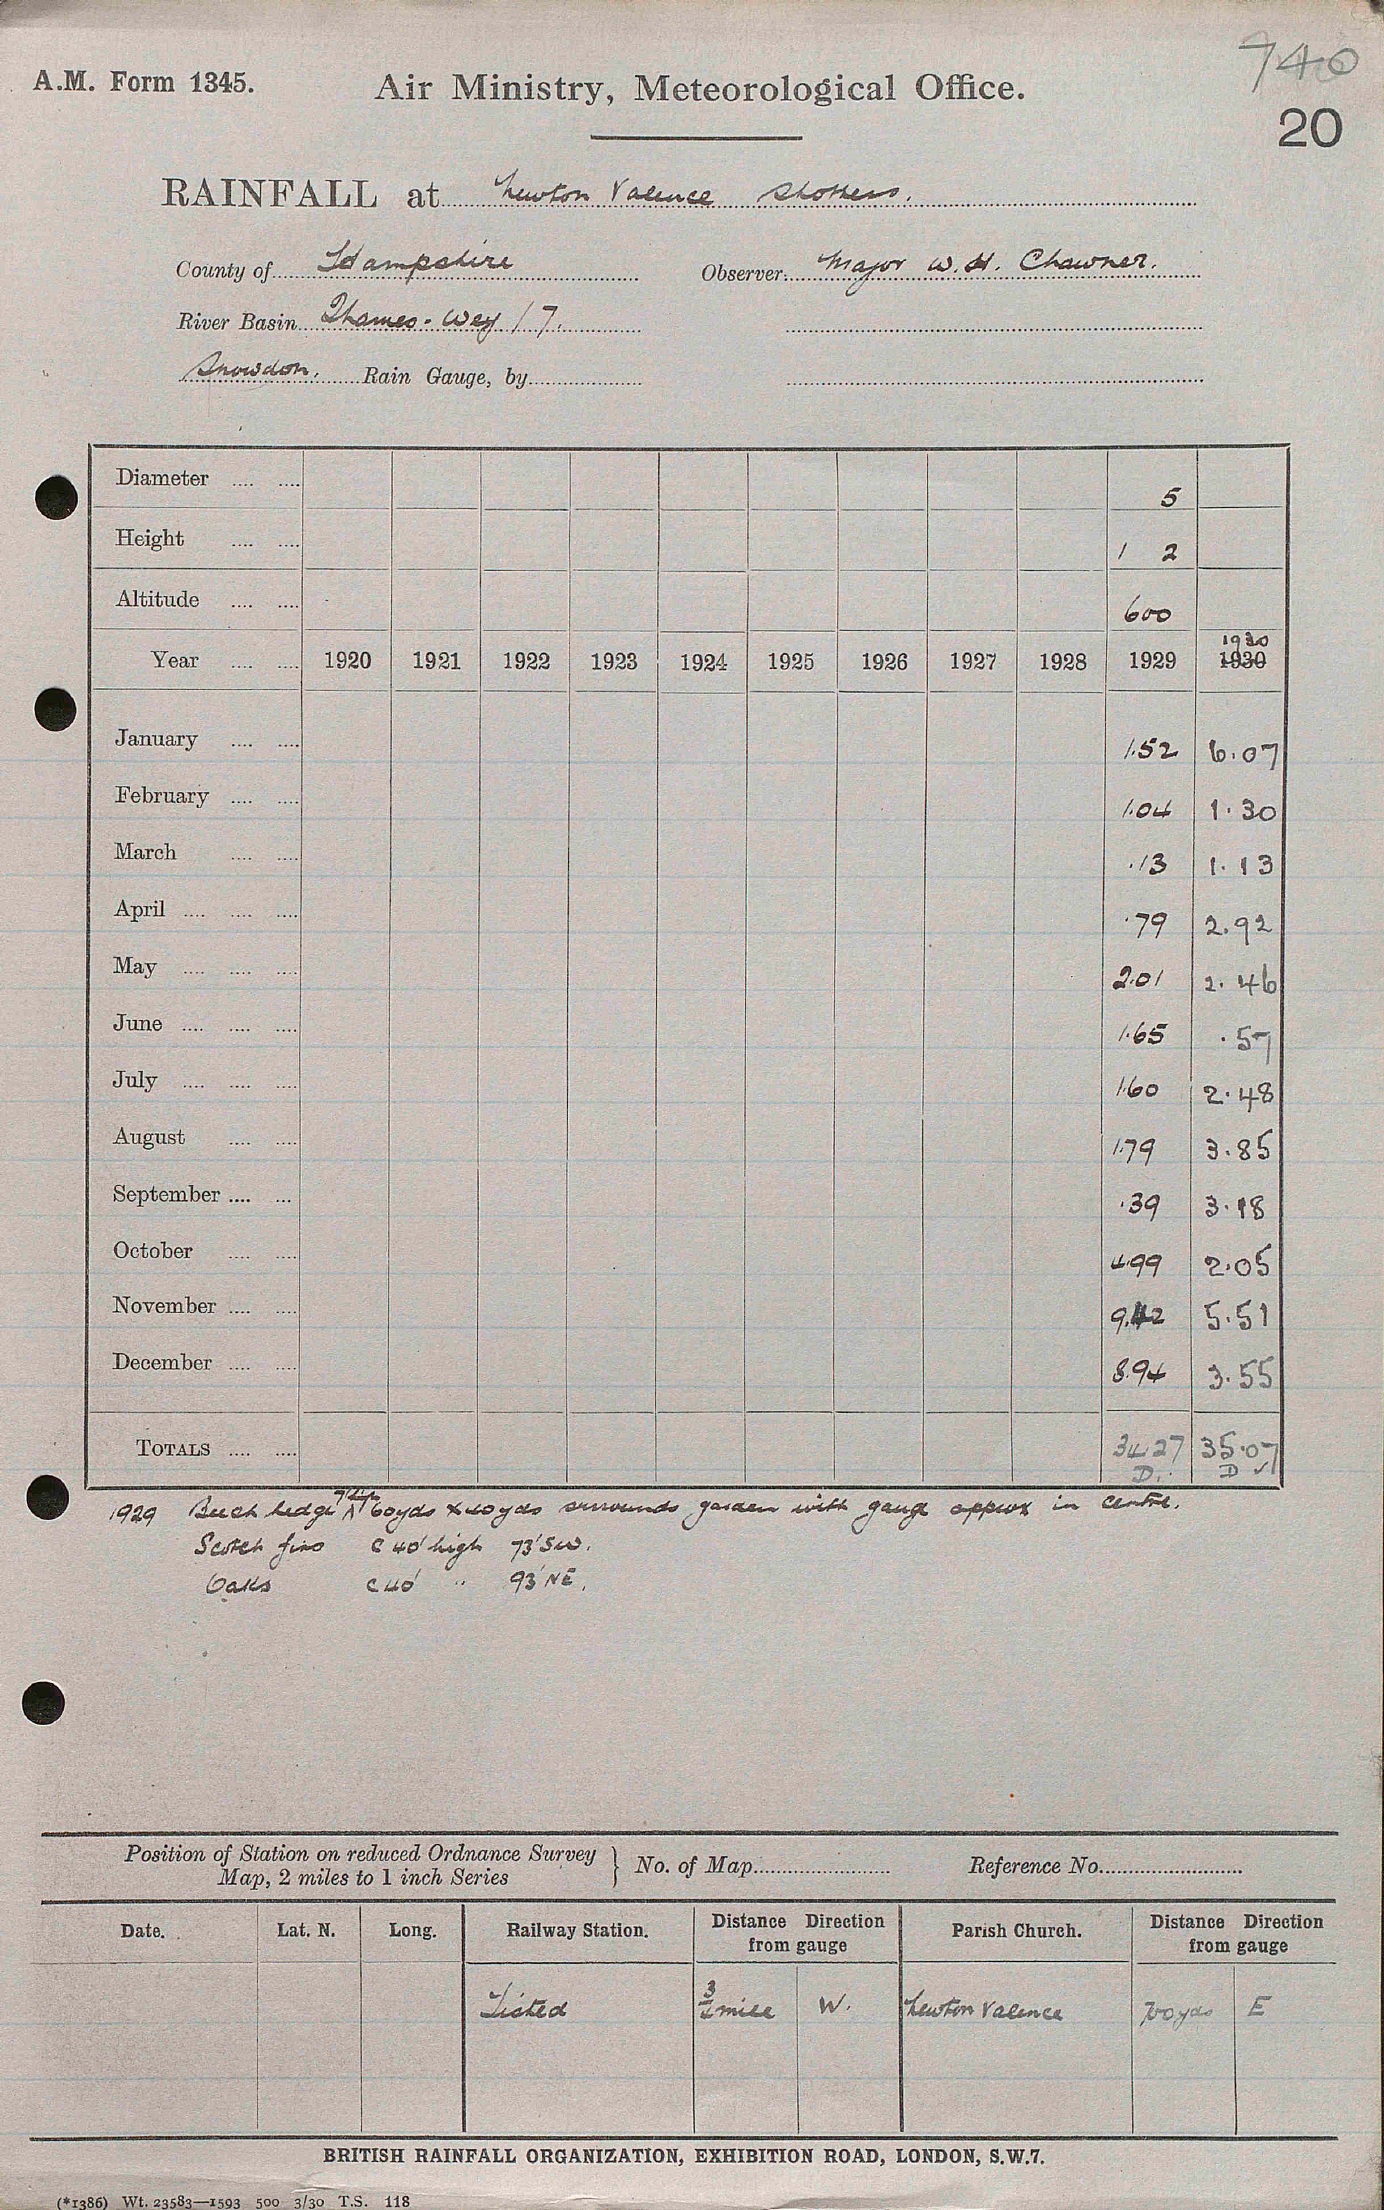 740
A.M. Form 1345. Air Ministry, Meteorological Office.
20
RAINFALL at Newton Valence
County of Hampshire Observer: Major W. H. Chawner.
River Basin Thames - Wey / 7.
Snowdon. Rain Gauge, by
Diameter .... .... 5
Height .... .... 1 2
Altitude .... .... 600
1930
Year .... .... 1920 1921 1922 1923 1924 1925 1926 1927 1928 1929 1930
January .... .... 1.52 6.07
February .... .... 1.04 1.30
March .... .... .13 1.13
April .... .... .... .79 2.92
May .... .... .... 2.01 2.46
June .... .... .... 1.65 .57
July .... .... .... 1.60 2.48
August .... .... 1.79 3.85
September .... ... .39 3.18
October .... .... 4.99 2.05
November .... .... 9.42 5.51
December .... .... 8.94 3.55
TOTALS .... .... 34.27 35.07
D. D ✓
1929 Beech hedge 60yds x 40yds surrounds garden with gauge approx in centre.
Scotch firs c 40' high 73' SW.
Oaks c 40' " 93' NE.
Position of Station on reduced Ordnance Survey
Map, 2 miles to 1 inch Series } No. of Map Reference No.
Date. Lat. N. Long. Railway Station. Distance Direction from gauge Parish Church. Distance Direction from gauge
Tisted 3/4 mile W. Newton Valence 700 yds E
BRITISH RAINFALL ORGANIZATION, EXHIBITION ROAD, LONDON, S.W.7.
(*1386) Wt. 23583—1593 500 3/30 T.S. 118